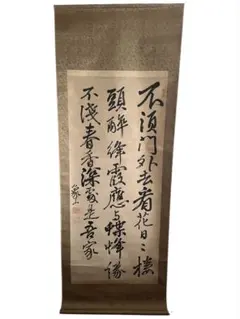 不須門外去看花日〻樓
頭醉絳霞應与蝶蜂緣
不淺春香深處是吾家
象山